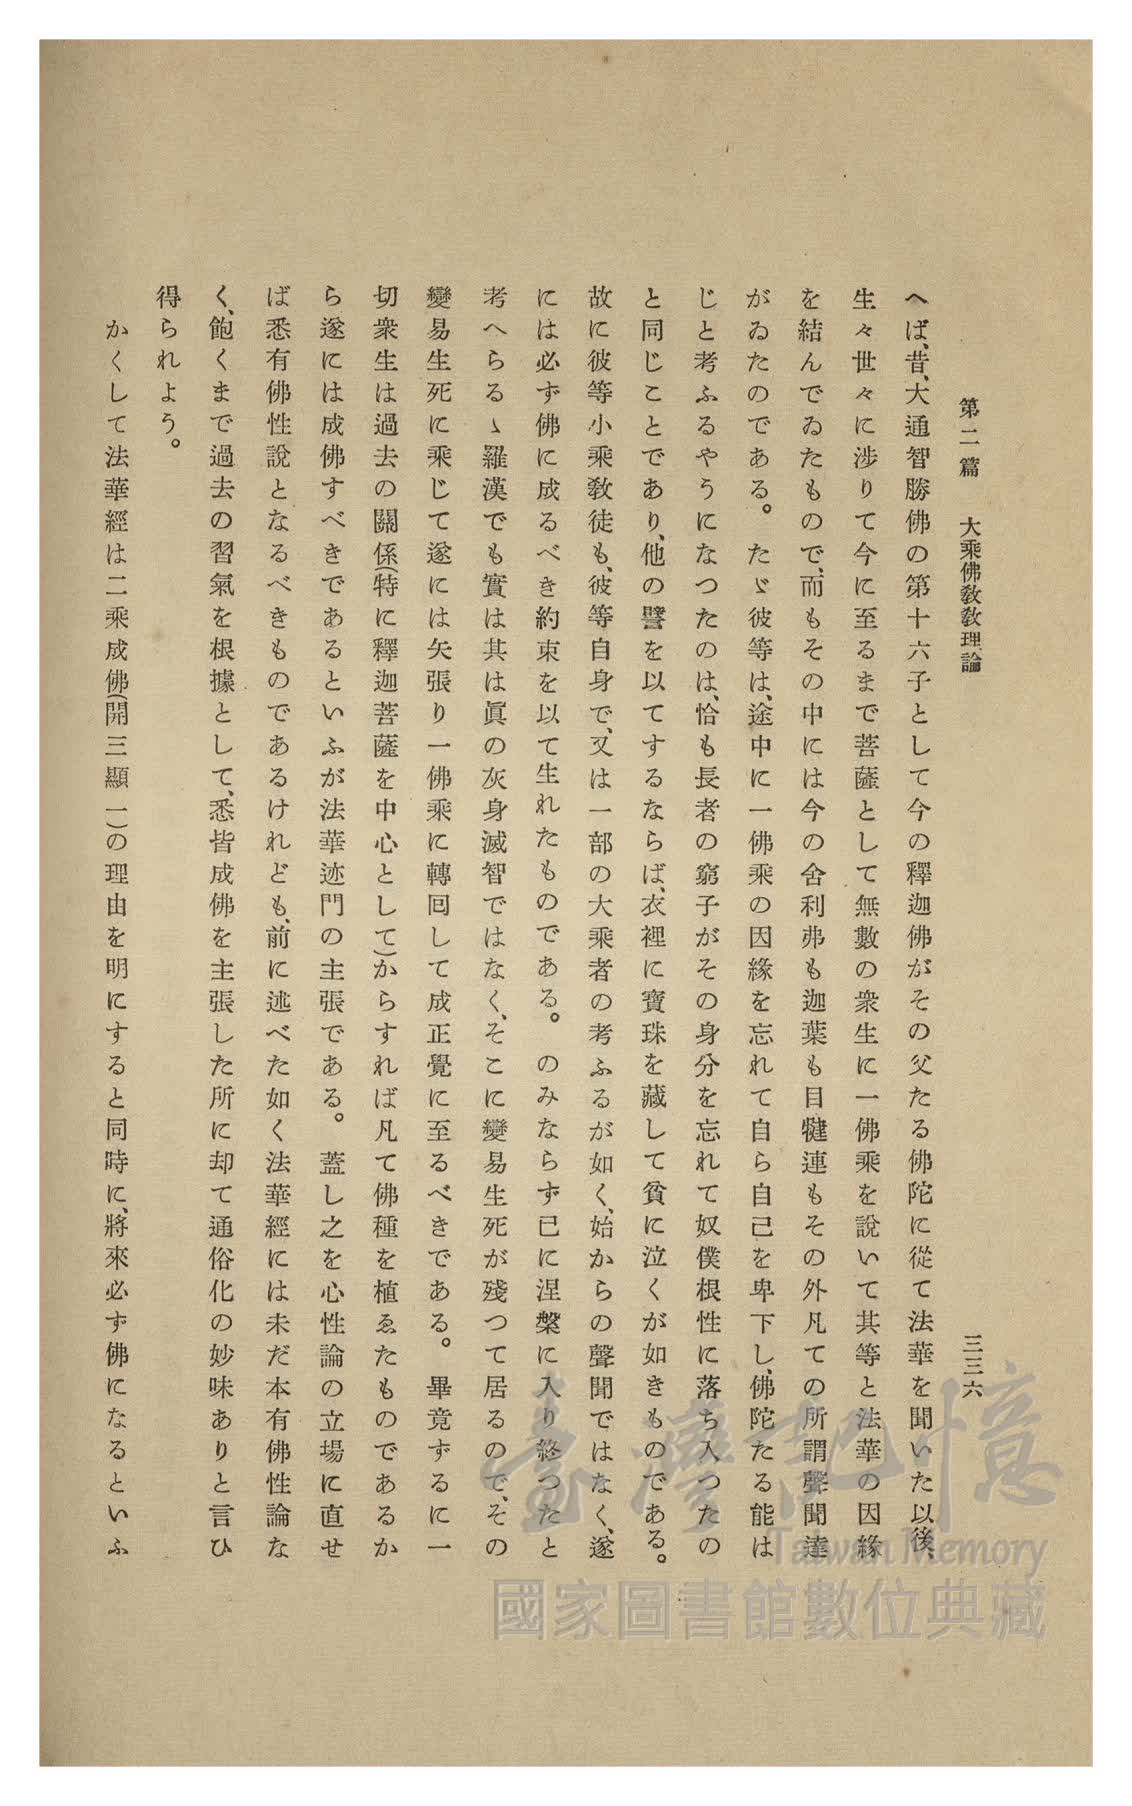 第二篇　大乘佛教教理論
三三六
へば、昔、大通智勝佛の第十六子として今の釋迦佛がその父たる佛陀に從て法華を聞いた以後、
生々世々に涉りて今に至るまで菩薩として無數の衆生に一佛乘を說いて其等と法華の因緣
を結んでゐたもので、而もその中には今の舍利弗も迦葉も目犍連もその外凡ての所謂聲聞達
がゐたのである。たゞ彼等は、途中に一佛乘の因緣を忘れて自ら自己を卑下し、佛陀たる能は
じと考ふるやうになつたのは、恰も長者の窮子がその身分を忘れて奴僕根性に落ち入つたの
と同じことであり、他の譬を以てするならば、衣裡に寶珠を藏して貧に泣くが如きものである。
故に彼等小乘教徒も、彼等自身で、又は一部の大乘者の考ふるが如く、始からの聲聞ではなく、遂
には必ず佛に成るべき約束を以て生れたものである。のみならず已に涅槃に入り終つたと
考へらるゝ羅漢でも實は其は眞の灰身滅智ではなく、そこに變易生死が殘つて居るので、その
變易生死に乘じて遂には矢張り一佛乘に轉回して成正覺に至るべきである。畢竟ずるに一
切衆生は過去の關係(特に釋迦菩薩を中心として)からすれば凡て佛種を植ゑたものであるか
ら遂には成佛すべきであるといふが法華迹門の主張である。蓋し之を心性論の立場に直せ
ば悉有佛性說となるべきものであるけれども、前に述べた如く法華經には未だ本有佛性論な
く、飽くまで過去の習氣を根據として、悉皆成佛を主張した所に却て通俗化の妙味ありと言ひ
得られよう。
かくして法華經は二乘成佛(開三顯一)の理由を明にすると同時に、將來必ず佛になるといふ
臺灣記憶
Taiwan Memory
國家圖書館數位典藏